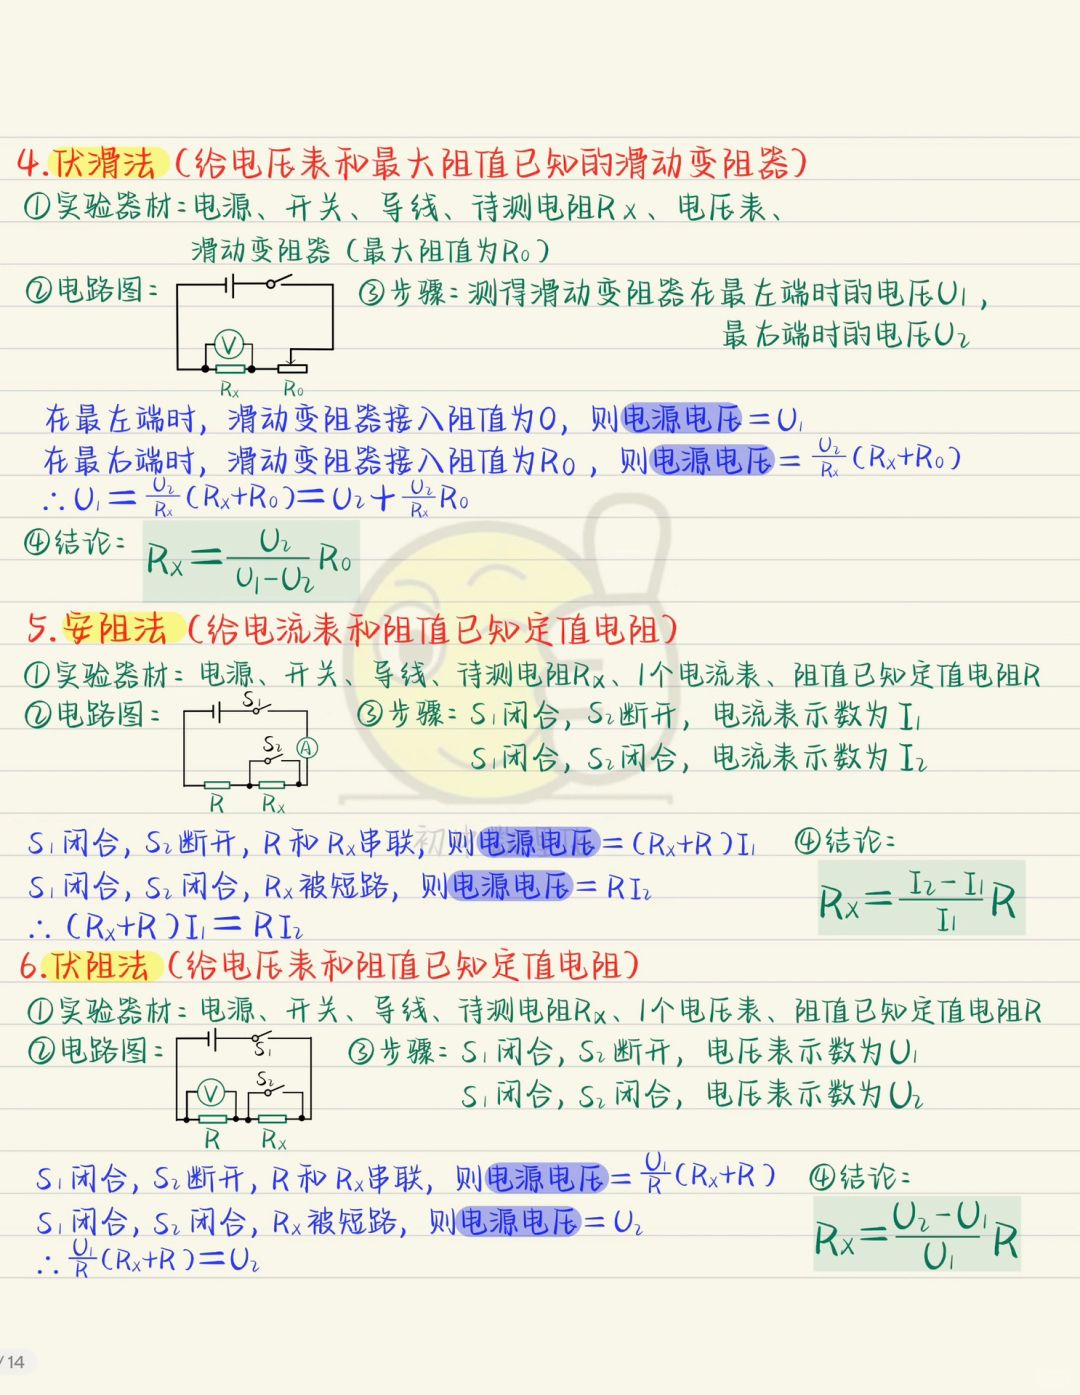 4.伏滑法(给电压表和最大阻值已知的滑动变阻器)
①实验器材:电源、开关、导线、待测电阻Rx、电压表、
滑动变阻器(最大阻值为R₀)
②电路图:
V
Rx R₀
③步骤:测得滑动变阻器在最左端时的电压U₁,
最右端时的电压U₂
在最左端时,滑动变阻器接入阻值为0,则电源电压=U₁
在最右端时,滑动变阻器接入阻值为R₀,则电源电压=U₂/Rx(Rx+R₀)
∴U₁=U₂/Rx(Rx+R₀)=U₂+U₂/Rx R₀
④结论: Rx=U₂/(U₁-U₂) R₀
5.安阻法(给电流表和阻值已知定值电阻)
①实验器材:电源、开关、导线、待测电阻Rx、1个电流表、阻值已知定值电阻R
②电路图:
S₁
S₂ A
R Rx
③步骤:S₁闭合,S₂断开,电流表示数为I₁
S₁闭合,S₂闭合,电流表示数为I₂
S₁闭合,S₂断开,R和Rx串联,则电源电压=(Rx+R)I₁
S₁闭合,S₂闭合,Rx被短路,则电源电压=RI₂
∴(Rx+R)I₁=RI₂
④结论:
Rx=(I₂-I₁)/I₁ R
6.伏阻法(给电压表和阻值已知定值电阻)
①实验器材:电源、开关、导线、待测电阻Rx、1个电压表、阻值已知定值电阻R
②电路图:
S₁
V S₂
R Rx
③步骤:S₁闭合,S₂断开,电压表示数为U₁
S₁闭合,S₂闭合,电压表示数为U₂
S₁闭合,S₂断开,R和Rx串联,则电源电压=U₁/R(Rx+R)
S₁闭合,S₂闭合,Rx被短路,则电源电压=U₂
∴U₁/R(Rx+R)=U₂
④结论:
Rx=(U₂-U₁)/U₁ R
/14